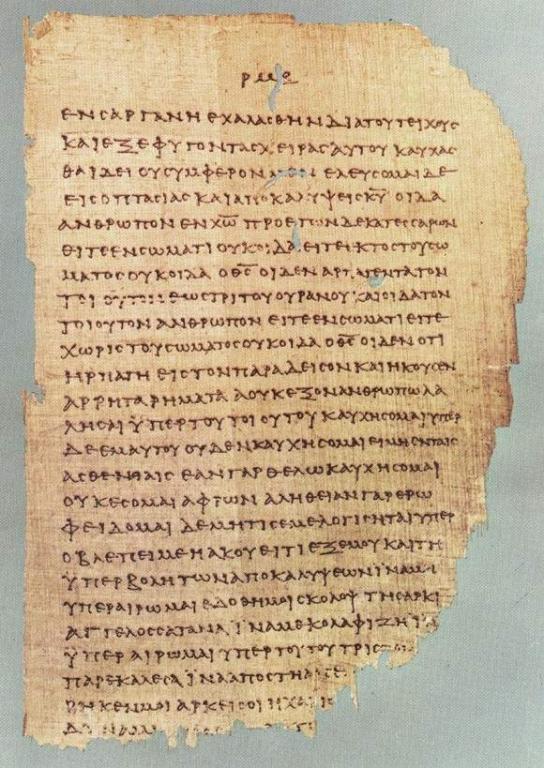 ΕΝϹΑΡΓΑΝΗΕΧΑΛΑϹΘΗΝΔΙΑΤΟΥΤΕΙΧΟΥϹ
ΚΑΙΕΞΕΦΥΓΟΝΤΑϹΧΕΙΡΑϹΑΥΤΟΥΚΑΥΧΑϹ
ΘΑΙΔΕΙΟΥϹΥΜΦΕΡΟΝΜΕΝΕΛΕΥϹΟΜΑΙΔΕ
ΕΙϹΟΠΤΑϹΙΑϹΚΑΙΑΠΟΚΑΛΥΨΕΙϹΚ̅Υ̅ΟΙΔΑ
ΑΝΘΡΩΠΟΝΕΝΧ̅Ω̅ΠΡΟΕΤΩΝΔΕΚΑΤΕϹϹΑΡΩΝ
ΕΙΤΕΕΝϹΩΜΑΤΙΟΥΚΟΙΔΑΕΙΤΕΕΚΤΟϹΤΟΥϹΩ
ΜΑΤΟϹΟΥΚΟΙΔΑΟΘ̅Ϲ̅ΟΙΔΕΝΑΡΠΑΓΕΝΤΑΤΟΝ
ΤΟΙΟΥΤΟΝΕΩϹΤΡΙΤΟΥΟΥΡΑΝΟΥΚΑΙΟΙΔΑΤΟΝ
ΤΟΙΟΥΤΟΝΑΝΘΡΩΠΟΝΕΙΤΕΕΝϹΩΜΑΤΙΕΙΤΕ
ΧΩΡΙϹΤΟΥϹΩΜΑΤΟϹΟΥΚΟΙΔΑΟΘ̅Ϲ̅ΟΙΔΕΝΟΤΙ
ΗΡΠΑΓΗΕΙϹΤΟΝΠΑΡΑΔΕΙϹΟΝΚΑΙΗΚΟΥϹΕΝ
ΑΡΡΗΤΑΡΗΜΑΤΑΑΟΥΚΕΞΟΝΑΝΘΡΩΠΩΛΑ
ΛΗϹΑΙΫΠΕΡΤΟΥΤΟΙΟΥΤΟΥΚΑΥΧΗϹΟΜΑΙΥΠΕΡ
ΔΕΕΜΑΥΤΟΥΟΥΔΕΝΚΑΥΧΗϹΟΜΑΙΕΙΜΗΕΝΤΑΙϹ
ΑϹΘΕΝΕΙΑΙϹΕΑΝΓΑΡΘΕΛΩΚΑΥΧΗϹΟΜΑΙ
ΟΥΚΕϹΟΜΑΙΑΦΡΩΝΑΛΗΘΕΙΑΝΓΑΡΕΡΩ
ΦΕΙΔΟΜΑΙΔΕΜΗΤΙϹΕΜΕΛΟΓΙϹΗΤΑΙΥΠΕΡ
ΟΒΛΕΠΕΙΜΕΗΑΚΟΥΕΙΤΙΕΞΕΜΟΥΚΑΙΤΗ
ΫΠΕΡΒΟΛΗΤΩΝΑΠΟΚΑΛΥΨΕΩΝΪΝΑΜΗ
ΥΠΕΡΑΙΡΩΜΑΙΕΔΟΘΗΜΟΙϹΚΟΛΟΨΤΗϹΑΡΚΙ
ΑΓΓΕΛΟϹϹΑΤΑΝΑΪΝΑΜΕΚΟΛΑΦΙΖΗΪΝ
ΫΠΕΡΑΙΡΩΜΑΙΥΠΕΡΤΟΥΤΟΥΤΡΙϹ
ΠΑΡΕΚΑΛΕϹΑΪΝΑΑΠΟΣΤΗΑΠΕ
ΡΗΚΕΝΜΟΙΑΡΚΕΙϹΟΙΗΧΑΡΙϹ